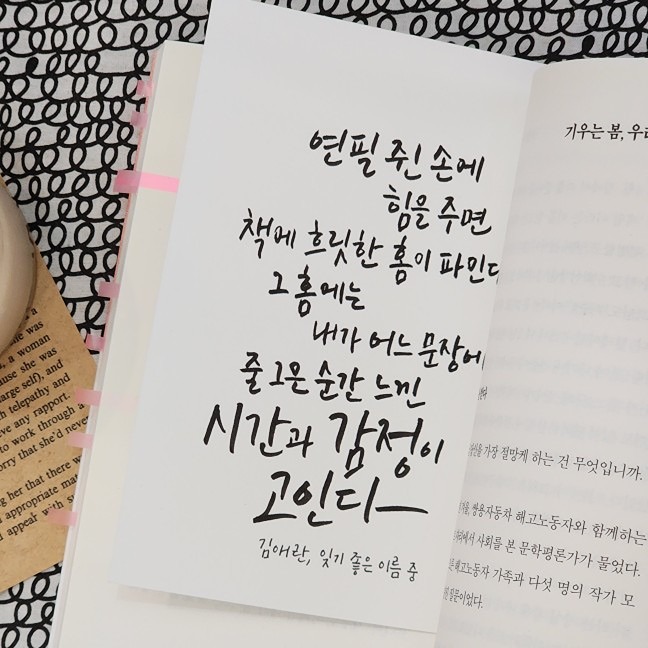 연필 쥔 손에
힘을 주면
책에 흐릿한 홈이 파인다
그 홈에는
내가 어느 문장에
줄 그은 순간 느낀
시간과 감정이
고인다
김애란, 잊기 좋은 이름 중
기우는 봄, 우리
가장 절망케 하는 건 무엇입니까.
쌍용자동차 해고노동자와 함께하는
사회를 본 문학평론가가 물었다.
해고노동자 가족과 다섯 명의 작가 모
was
a woman
cause she was
large self), and
telepathy and
ve any rapport.
to work through a
orry that she'd never
ng her that there
appropriate
appear with